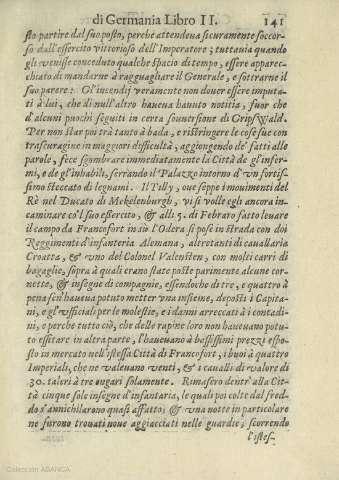 di Germania Libro II. 141
sto partire dal suo posto, perche attendeua sicuramente soccor-
so dall'essercito vittorioso dell'Imperatore; tuttauia quando
gli venisse conceduto qualche spacio di tempo, essere apparec-
chiato di mandarne à ragguagliare il Generale, e sottrarne il
suo parere: Gl'incendij veramente non douer essere imputa-
ti à lui, che di null'altro haueua hauuto notitia, fuor che
d'alcuni puochi seguiti in certa sountsione di GripsWald.
Per non star poi trà tanto à bada, e ristringere le cose sue con
trascuragine in maggiori difficultà, aggiongendo de' fatti alle
parole, fece sgombrare immediatamente la Città de gl'infer-
mi, e de gl'inhabili, serrando il Palazzo intorno d'vn fortis-
simo steccato di legnami. Il Tilly, oue seppe i mouimenti del
Rè nel Ducato di Mekelenburgh, vi si volle egli ancora in-
caminare co'l suo essercito, & alli 5. di Febraro fatto leuare
il campo da Francofort in sù l'Odera si pose in strada con doi
Reggimenti d'infanteria Alemana, altretanti di cauallaria
Croatta, & vno del Colonel Valensten, con molti carri di
bagaglie, sopra à quali erano state poste parimente alcune cor-
nette, & insegne di compagnie, essendoche di tre, e quattro à
pena se n'haueua potuto metter vna insieme, deposti i Capita-
ni, e gl'vfficiali per le molestie, e i danni arreccati à i contadi-
ni, e perche tutto ciò, che delle rapine loro non haueuano potu-
to essitare in altra parte, l'haueuano à bessissimi prezzi espo-
sto in mercato nell'istessa Città di Francofort, i buoi à quattro
Imperiali, che ne valeuano venti, & i caualli di valore di
30. taleri à tre ungari solamente. Rimasero dentr'alla Cit-
tà cinque sole insegne d'infantaria, le quali poi colte dal fred-
do s'annichilarono quasi affatto; & vna notte in particolare
ne furono trouati noue aggiacciati nelle guardie; scorrendo
l'istes-
Colección ABANCA